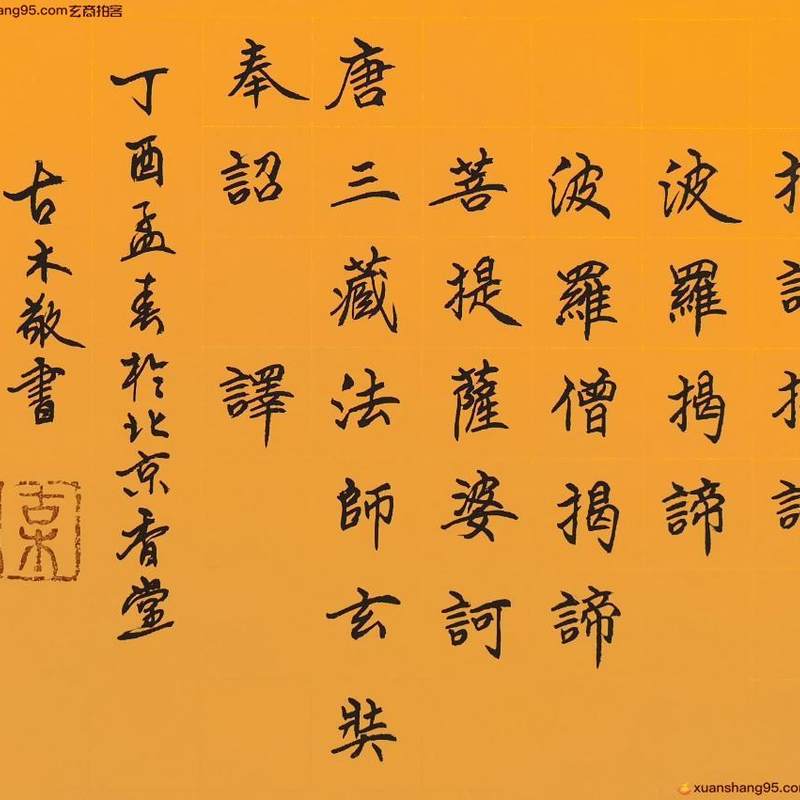 波羅揭諦
波羅僧揭諦
菩提薩婆訶
唐三藏法師玄奘
奉詔譯
丁酉孟春於北京香堂
古木敬書
古木
ang95.com玄商拍客
xuanshang95.com